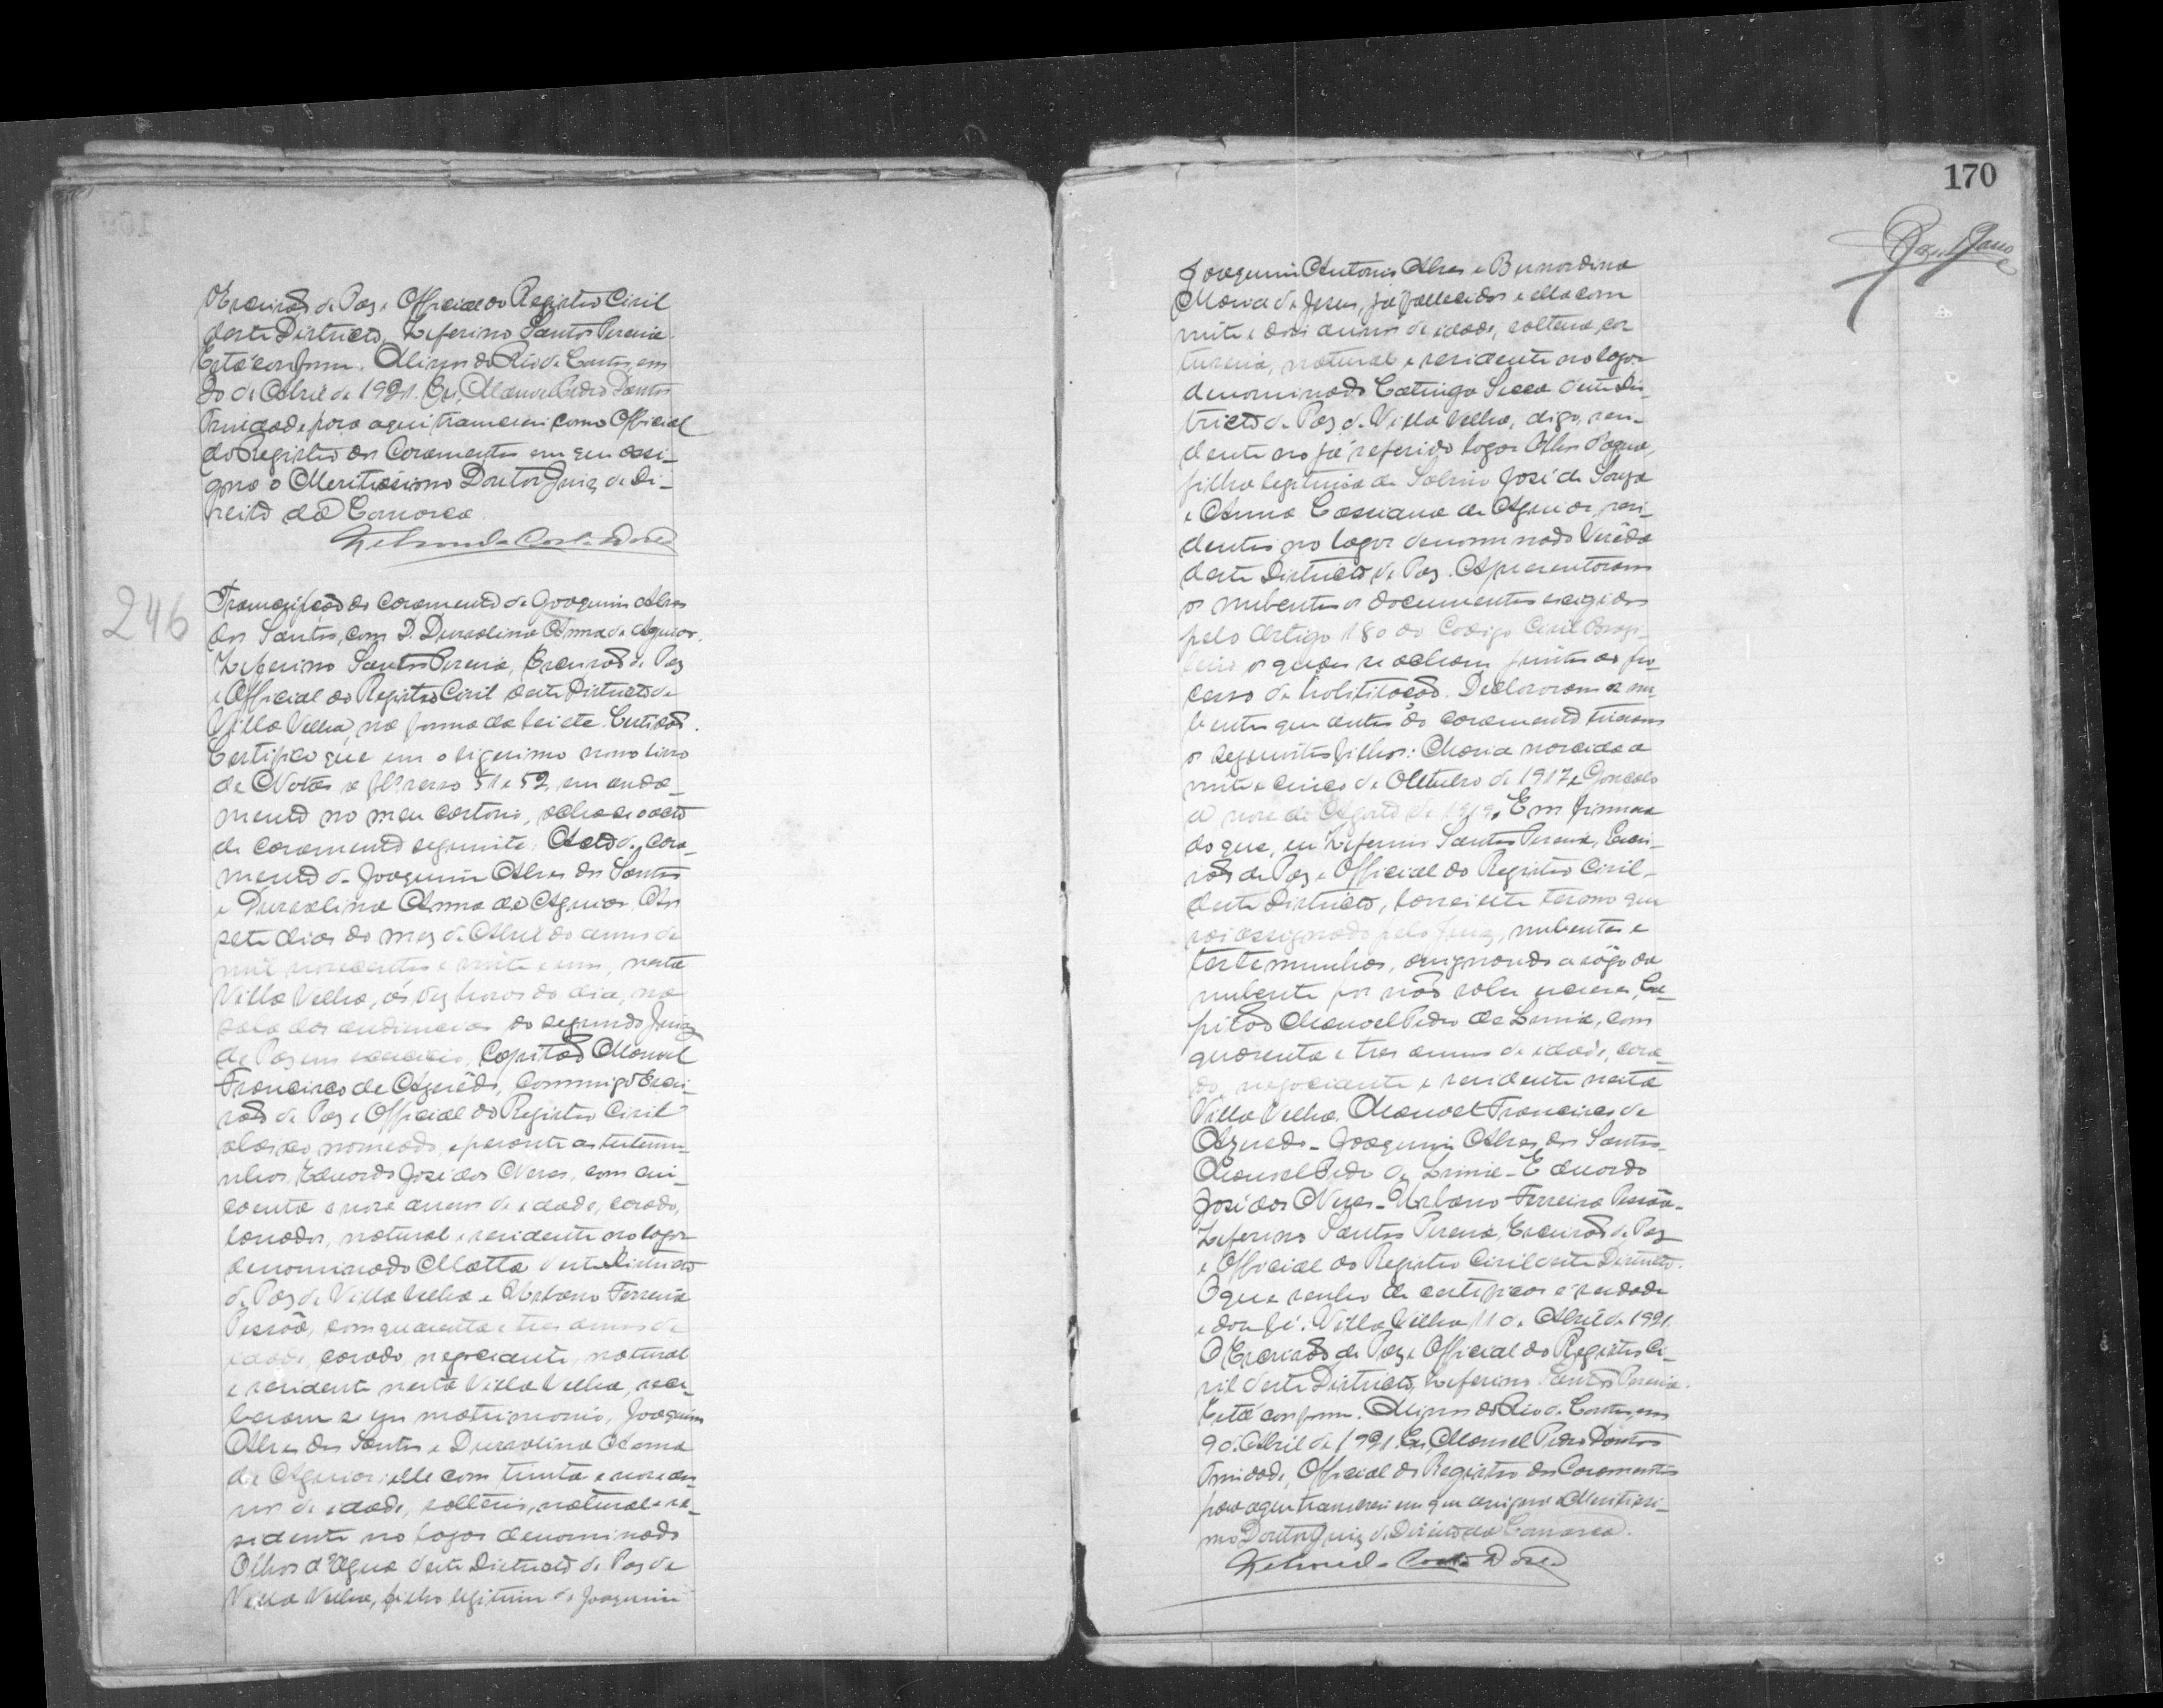 Escrivão de Paz e Official do Registro Civil
deste Districto, Zeferino Santos Pereira.
Está conforme. Minas do Rio de Contas, em
30 de Abril de 1921. Eu, Manoel Pedro Dantas
Trindade para aqui transcrevi como Official
do Registro dos Casamentos em que assi-
gna o Meritissimo Doutor Juiz de Di-
reito da Comarca.
246
Transcripção do casamento de Joaquim Alves
dos Santos, com D. Durvalina Anna de Aguiar.
Zeferino Santos Pereira, Escrivão de Paz
e Official do Registro Civil deste Districto de
Villa Velha, na forma da lei etc. Certidão.
Certifico que em o vigesimo nono livro
de Notas a fls verso 51 e 52, em anda-
mento no meu cartorio, acha-se o acto
de casamento seguinte: Acto de casa-
mento de Joaquim Alves dos Santos
e Durvalina Anna de Aguiar. Aos
sete dias do mez de Abril do anno de
mil novecentos e vinte e um, nesta
Villa Velha, ás dez horas do dia, na
sala das audiencias do segundo Juiz
de Paz em exercicio, Capitão Manoel
Francisco de Azevêdo, commigo Escri-
vão de Paz e Official do Registro Civil
abaixo nomeado, e perante as testemu-
nhas, Eduardo José das Neves, com cin-
coenta e nove annos de edade, casado,
lavrador, natural e residente no logar
denominado Matta deste Districto
de Paz de Villa Velha e Urbano Ferreira
Pessôa, com quarenta e tres annos de
edade, casado, negociante, natural
e residente nesta Villa Velha, rece-
beram-se em matrimonio, Joaquim
Alves dos Santos e Durvalina Anna
de Aguiar: elle com trinta e nove an-
nos de edade, solteiro, natural e re-
sidente no logar denominado
Olhos d'Agua deste Districto de Paz de
Villa Velha, filho legitimo de Joaquim
170
Joaquim Antonio Alves e Bernardina
Maria de Jesus, já fallecidos e ella com
vinte e dois annos de edade, solteira, cos
tureira, natural e residente no logar
denominado Catinga Secca deste Dis-
tricto de Paz de Villa Velha, digo, resi-
dente no já referido logar Olhos d'agua,
filha legitima de Sabino José de Souza
e Anna Cassiana de Aguiar, resi-
dentes no logar denominado Verêda
deste Districto de Paz. Apresentaram
os nubentes os documentos exigidos
pelo Artigo 180 do Codigo Civil Brazi-
leiro os quaes se acham juntos ao pro
cesso de habilitação. Declararam os nu
bentes que antes do casamento tiveram
os seguintes filhos: Maria nascida a
vinte e cinco de Outubro de 1917 e Gonçalo
a nove de Agosto de 1919. Em firmeza
do que, eu Zeferino Santos Pereira, Escri-
vão de Paz e Official do Registro Civil
deste Districto, lavrei este termo que
vai assignado pelo Juiz, nubentes e
testemunhas, assignando a rôgo da
nubente por não saber escrever, Ca-
pitão Manoel Pedro de
quarenta e tres annos de edade, casa-
do, negociante e residente nesta
Villa Velha. Manoel Francisco de
Azevedo - Joaquim Alves dos Santos -
Manoel Pedro de - Eduardo
José das Neves - Urbano Ferreira Pessôa -
Zeferino Santos Pereira, Escrivão de Paz
e Official do Registro Civil deste Districto.
O que venho de certificar é verdade
e dou fé. Villa Velha, 11 de Abril de 1921.
O Escrivão de Paz e Official do Registro Ci-
vil deste Districto, Zeferino Santos Pereira.
Está conforme. Minas do Rio de Contas, em
9 de Abril de 1921. Eu, Manoel Pedro Dantas
Trindade, Official do Registro dos Casamentos
para aqui transcrevi em que assigna o Meritissi-
mo Doutor Juiz de Direito da Comarca.